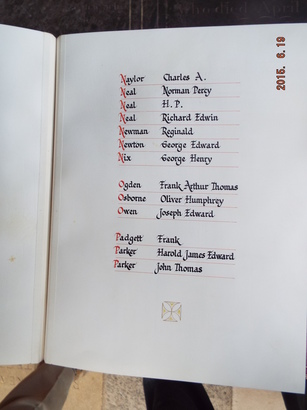 Naylor Charles A.
Neal Norman Percy
Neal H. P.
Neal Richard Edwin
Newman Reginald
Newton George Edward
Nix George Henry
Ogden Frank Arthur Thomas
Osborne Oliver Humphrey
Owen Joseph Edward
Padgett Frank
Parker Harold James Edward
Parker John Thomas
2015. 6. 19